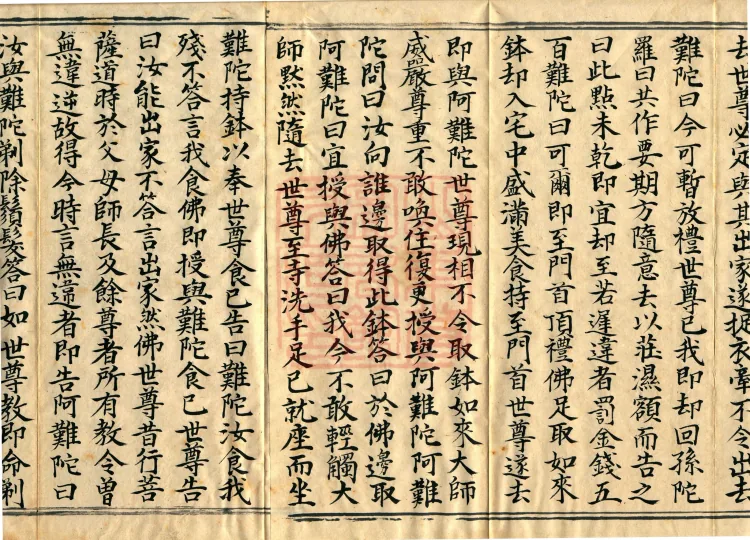 去世尊必定與其出家遂捉衣牽不令出去
難陀曰今可暫放禮世尊已我即却回孫陀
羅曰共作要期方隨意去以莊濕額而告之
曰此點未乾即宜却至若遲違者罰金錢五
百難陀曰可爾即至門首頂禮佛足取如來
鉢却入宅中盛滿美食持至門首世尊遂去
即與阿難陀世尊現相不令取鉢如來大師
威嚴尊重不敢喚住復更授與阿難陀阿難
陀問曰汝向誰邊取得此鉢答曰於佛邊取
阿難陀曰宜授與佛答曰我今不敢輕觸大
師默然隨去世尊至寺洗手足已就座而坐
難陀持鉢以奉世尊食已告曰難陀汝食我
殘不答言我食佛即授與難陀食已世尊告
曰汝能出家不答言出家然佛世尊昔行菩
薩道時於父母師長及餘尊者所有教令曾
無違逆故得今時言無違者即告阿難陀曰
汝與難陀剃除鬚髮答曰如世尊教即命剃